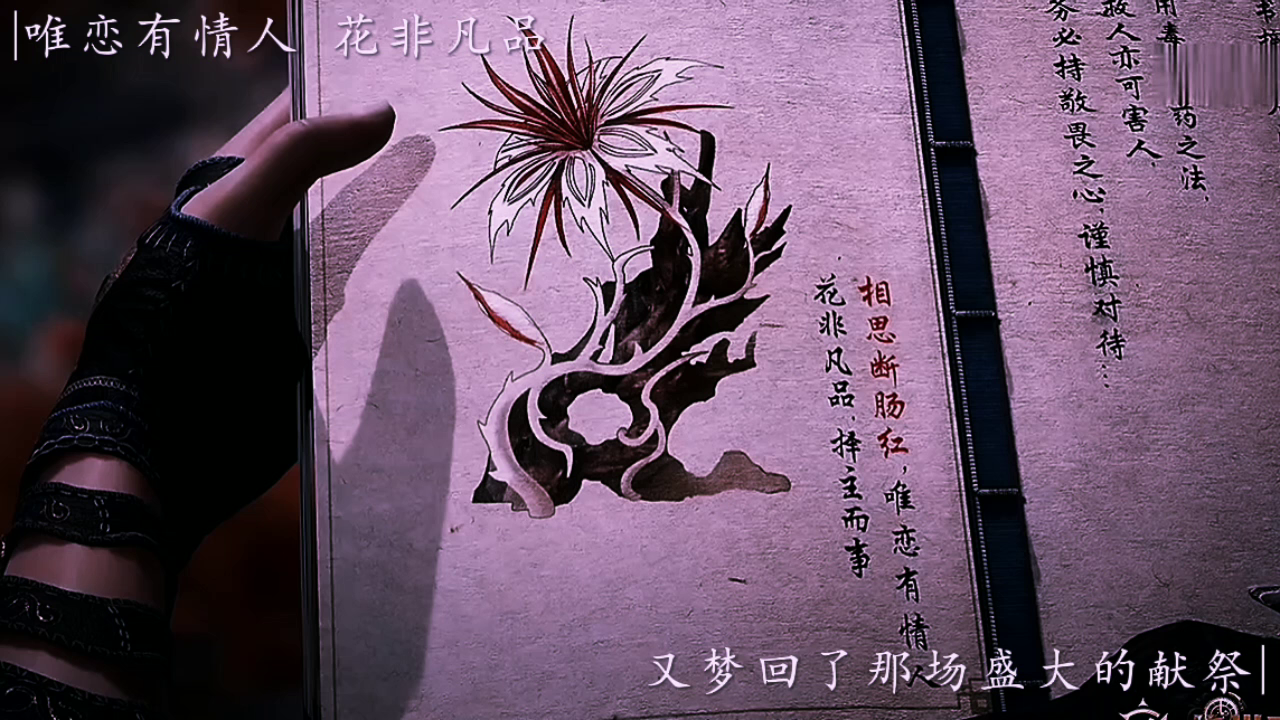 唯恋有情人 花非凡品
务必持敬畏之心,谨慎对待…
救人亦可害人,
药之法,
相思断肠红,唯恋有情人
花非凡品,择主而事
又梦回了那场盛大的献祭